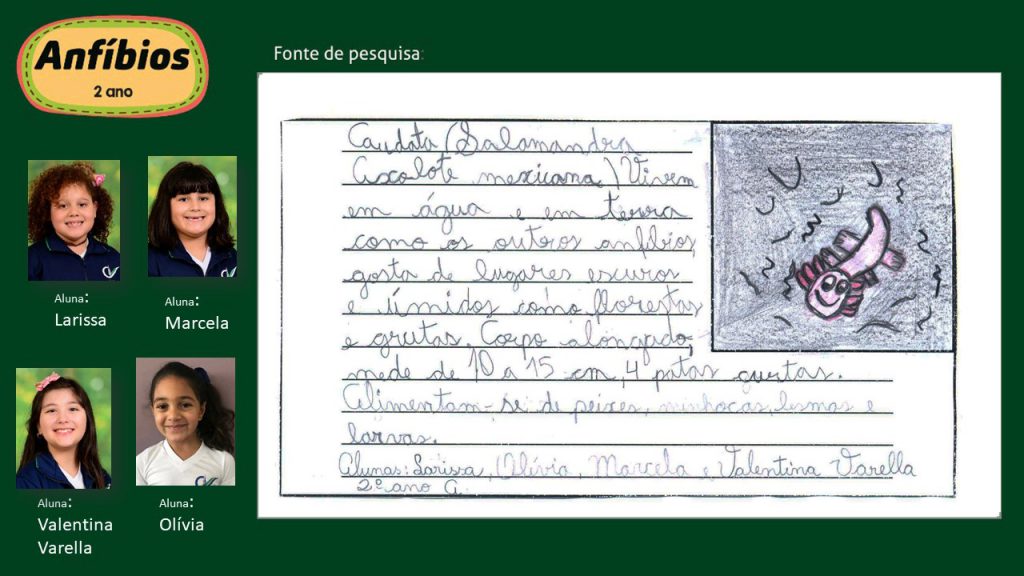 Anfíbios
2 ano
Fonte de pesquisa:
Aluna:
Larissa
Aluna:
Marcela
Aluna:
Valentina
Varella
Aluna:
Olívia
Caudata (Salamandra
Axolote mexicana) Vivem
em água e em terra
como os outros anfíbios,
gosta de lugares escuros
e úmidos como florestas
e grutas. Corpo alongado,
mede de 10 a 15 cm, 4 patas curtas.
Alimentam-se de peixes, minhocas, lesmas e
larvas.
Alunas: Larissa, Olívia, Marcela e Valentina Varella
2º ano A.